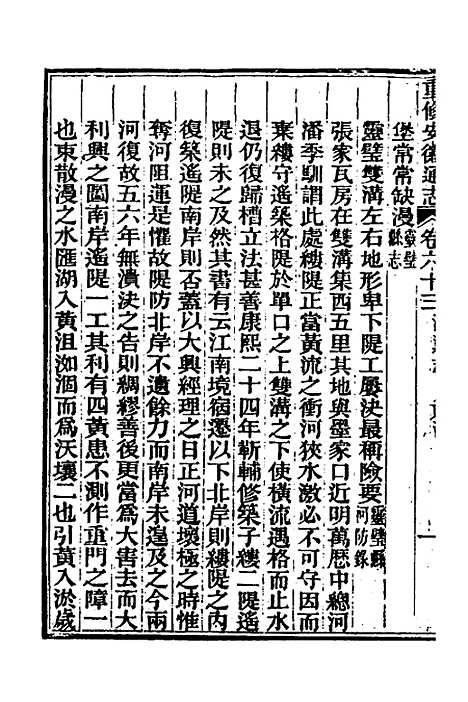 重修安徽通志 卷六十三
堡常常缺漫靈璧縣志
靈璧雙溝左右地形卑下隄工屢決最稱險要靈璧縣河防錄
張家瓦房在雙溝集西五里其地與墨家口近明萬厯中總河
潘季馴謂此處縷隄正當黃流之衝河狹水激必不可守因而
棄縷守遥築格隄於單口之上雙溝之下使橫流遇格而止水
退仍復歸槽立法甚善康熙二十四年靳輔修築子縷二隄遥
隄則未之及然其書有云江南境宿遷以下北岸則縷隄之內
復築遥隄南岸則否蓋以大興經理之日正河道壞極之時惟
奪河阻運是懼故隄防北岸不遺餘力而南岸未遑及之今兩
河復故五六年無潰決之告則綢繆善後更當爲大害去而大
利興之圖南岸遥隄一工其利有四黃患不測作重門之障一
也束散漫之水匯湖入黃沮洳涸而爲沃壤二也引黃入淤歲